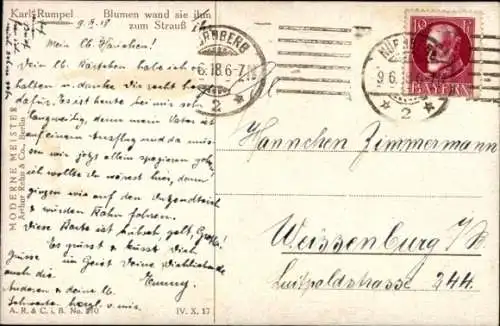 Karl Rumpel Blumen wand sie ihm
zum Strauß
9.6.18
Mein lb. Hänschen!
Dein lb. Kärtchen habe ich
halten u. danke Dir recht herzl.
dafür. Es ist heute bei mir sehr
langweilig, denn mein Vater ist
auf einem Ausflug und da müssen
wir jetzt allein spazieren gehen,
ich wollte du wärst hier, dann
gingen wir auf den Dutzendteich
u. würden Kahn fahren.
Diese Karte ist hübsch, gelt,
Es grüsst u. küsst Dich
im Geist Deine Dichliebende
Emmy.
Grüsse
auch die
Anderen u. deine lb.
Schwester herzl. v. mir.
MODERNE MEISTER
Arthur Rehn & Co., Berlin
A. R. & C. i. B. No. 840
IV. X. 17
NÜRNBERG
6.18.6-7
2
NÜRNBERG
9.6.18.6-7
2
10
BAYERN
Hannchen Zimmermann
Weissenburg i/B
Luitpoldstrasse 244.